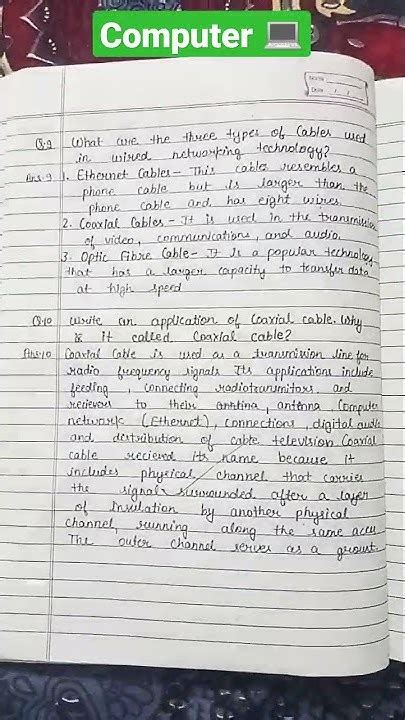 Computer 💻
Name
Date / /
Q.9 What are the three types of Cables used
in wired networking technology?
Ans.9 1. Ethernet Cables - This cables resembles a
phone cable but is larger than the
phone cable and has eight wires.
2. Coaxial Cables - It is used in the transmission
of video, communications, and audio.
3. Optic Fibre Cable - It is a popular technology
that has a larger capacity to transfer data
at high speed
Q.10 Write an application of Coaxial cable. Why
is it called Coaxial cable?
Ans.10 Coaxial Cable is used as a transmission line for
radio frequency signals. Its applications include
feeding, connecting radiotransmitors, and
recievers to their antenna, Computer
network (Ethernet), connections, digital audio
and distribution of cable television. Coaxial
cable recieved its name because it
includes physical channel that carries
the signal surrounded after a layer
of Insulation by another physical
channel, running along the same
The outer channel serves as a